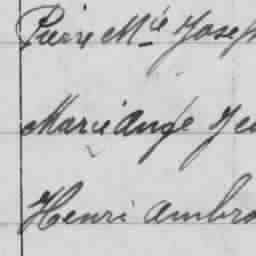 Pierre Mie Joseph
Marie Ange Je
Henri Ambro